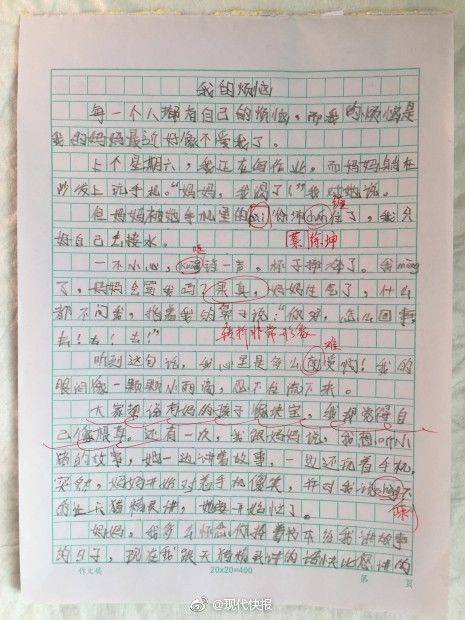 我的烦恼
每一个人都有自己的烦恼,而我的烦恼是
我的妈妈最近好像不爱我了。
上个星期六,我正在写作业,而妈妈躺在
沙发上玩手机。“妈妈,我渴了!”我对她说。
但妈妈被她手机里的 住了,我只
缠
好自己去接水。
蔡徐坤
一不小心, 一声,杯子摔碎了。我měng
了,妈妈会骂我吗?果真,妈妈生气了,什么
都不问我,指着我的鼻子说:“你呀,怎么回事,
去!去!去!”
转折非常形象
听到这句话,我心里是多么南受啊!我的
难
眼泪像一颗颗小雨滴,忍不住流下来。
大家都说有妈的孩子像块宝,我却觉得自
己像根草。还有一次,我跟妈妈说,我想听小
猪的故事,她一边讲着故事,一边还玩着手机,
突然,妈妈开始对着手机傻笑,并对我说
陈
的让天猫精灵讲,她要开始忙了。
妈妈,我多么怀念你捧着书本给我讲故事
的日子,现在我跟天猫精灵讲的话快比您讲的
作文稿
20×20=400
第 页
@现代快报